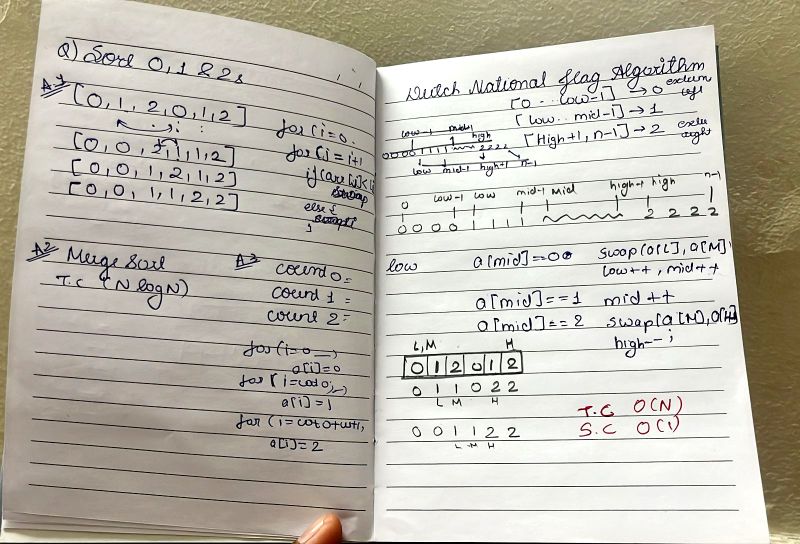 Q) Sort 0, 1 & 2s
A1
[0, 1, 2, 0, 1, 2]
[0, 0, 2, 1, 1, 2]
[0, 0, 1, 2, 1, 2]
[0, 0, 1, 1, 2, 2]
for (i=0
for (j = i+1
if (arr[j] <
swap
else {
}
A2 Merge Sort
T.C (N log N)
A3 count 0 =
count 1 =
count 2 =
for (i=0 —)
a[i]=0
for (i=cnt0;—)
a[i]=1
for (i=cnt0+cnt1,
a[i]=2
Dutch National flag Algorithm
[0 .. low-1] → 0 extreme left
[low .. mid-1] → 1
[High+1, n-1] → 2 extre right
low-1 mid high
0000 1111 2222
low mid-1 high+1 n-1
0 low-1 low mid-1 mid high+1 high n-1
0 0 0 0 1 1 1 1 2 2 2 2
low a[mid]==0 swap(a[L], a[M])
low++, mid++
a[mid]==1 mid++
a[mid]==2 swap(a[M], a[H])
high--;
L,M H
0 1 2 0 1 2
0 1 1 0 2 2
L M H
0 0 1 1 2 2
L M H
T.C O(N)
S.C O(1)